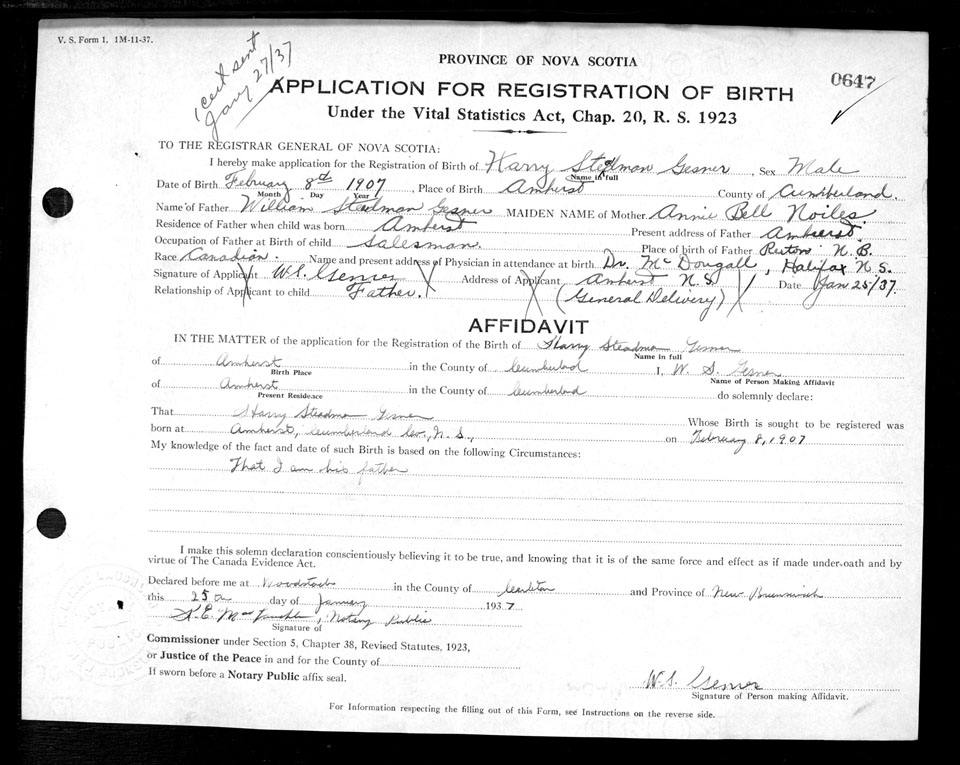 V. S. Form 1. 1M-11-37.
(cert sent
Jany 27/37
PROVINCE OF NOVA SCOTIA
0647
APPLICATION FOR REGISTRATION OF BIRTH
Under the Vital Statistics Act, Chap. 20, R. S. 1923
TO THE REGISTRAR GENERAL OF NOVA SCOTIA:
I hereby make application for the Registration of Birth of Harry Stedman Gesner, Sex Male
Name in full
Date of Birth February 8th 1907, Place of Birth Amherst County of Cumberland.
Month Day Year
Name of Father William Steadman Gesner MAIDEN NAME of Mother Annie Bell Noiles.
Residence of Father when child was born Amherst Present address of Father Amherst.
Occupation of Father at Birth of child Salesman. Place of birth of Father Rexton N. B.
Race Canadian. Name and present address of Physician in attendance at birth Dr. McDougall, Halifax N. S.
Signature of Applicant W.S. Gesner Address of Applicant Amherst N.S. Date Jan 25/37.
Relationship of Applicant to child Father. (General Delivery)
AFFIDAVIT
IN THE MATTER of the application for the Registration of the Birth of Harry Steadman Gesner
Name in full
of Amherst in the County of Cumberland I, W. S. Gesner
Birth Place Name of Person Making Affidavit
of Amherst in the County of Cumberland do solemnly declare:
Present Residence
That Harry Steadman Gesner Whose Birth is sought to be registered was
born at Amherst, Cumberland Co., N. S., on February 8, 1907
My knowledge of the fact and date of such Birth is based on the following Circumstances:
That I am his father
I make this solemn declaration conscientiously believing it to be true, and knowing that it is of the same force and effect as if made under oath and by
virtue of The Canada Evidence Act.
Declared before me at Woodstock in the County of Carleton and Province of New Brunswick
this 25th day of January 1937
Notary Public
Signature of
Commissioner under Section 5, Chapter 38, Revised Statutes, 1923,
or Justice of the Peace in and for the County of
If sworn before a Notary Public affix seal.
W. S. Gesner
Signature of Person making Affidavit.
For Information respecting the filling out of this Form, see Instructions on the reverse side.